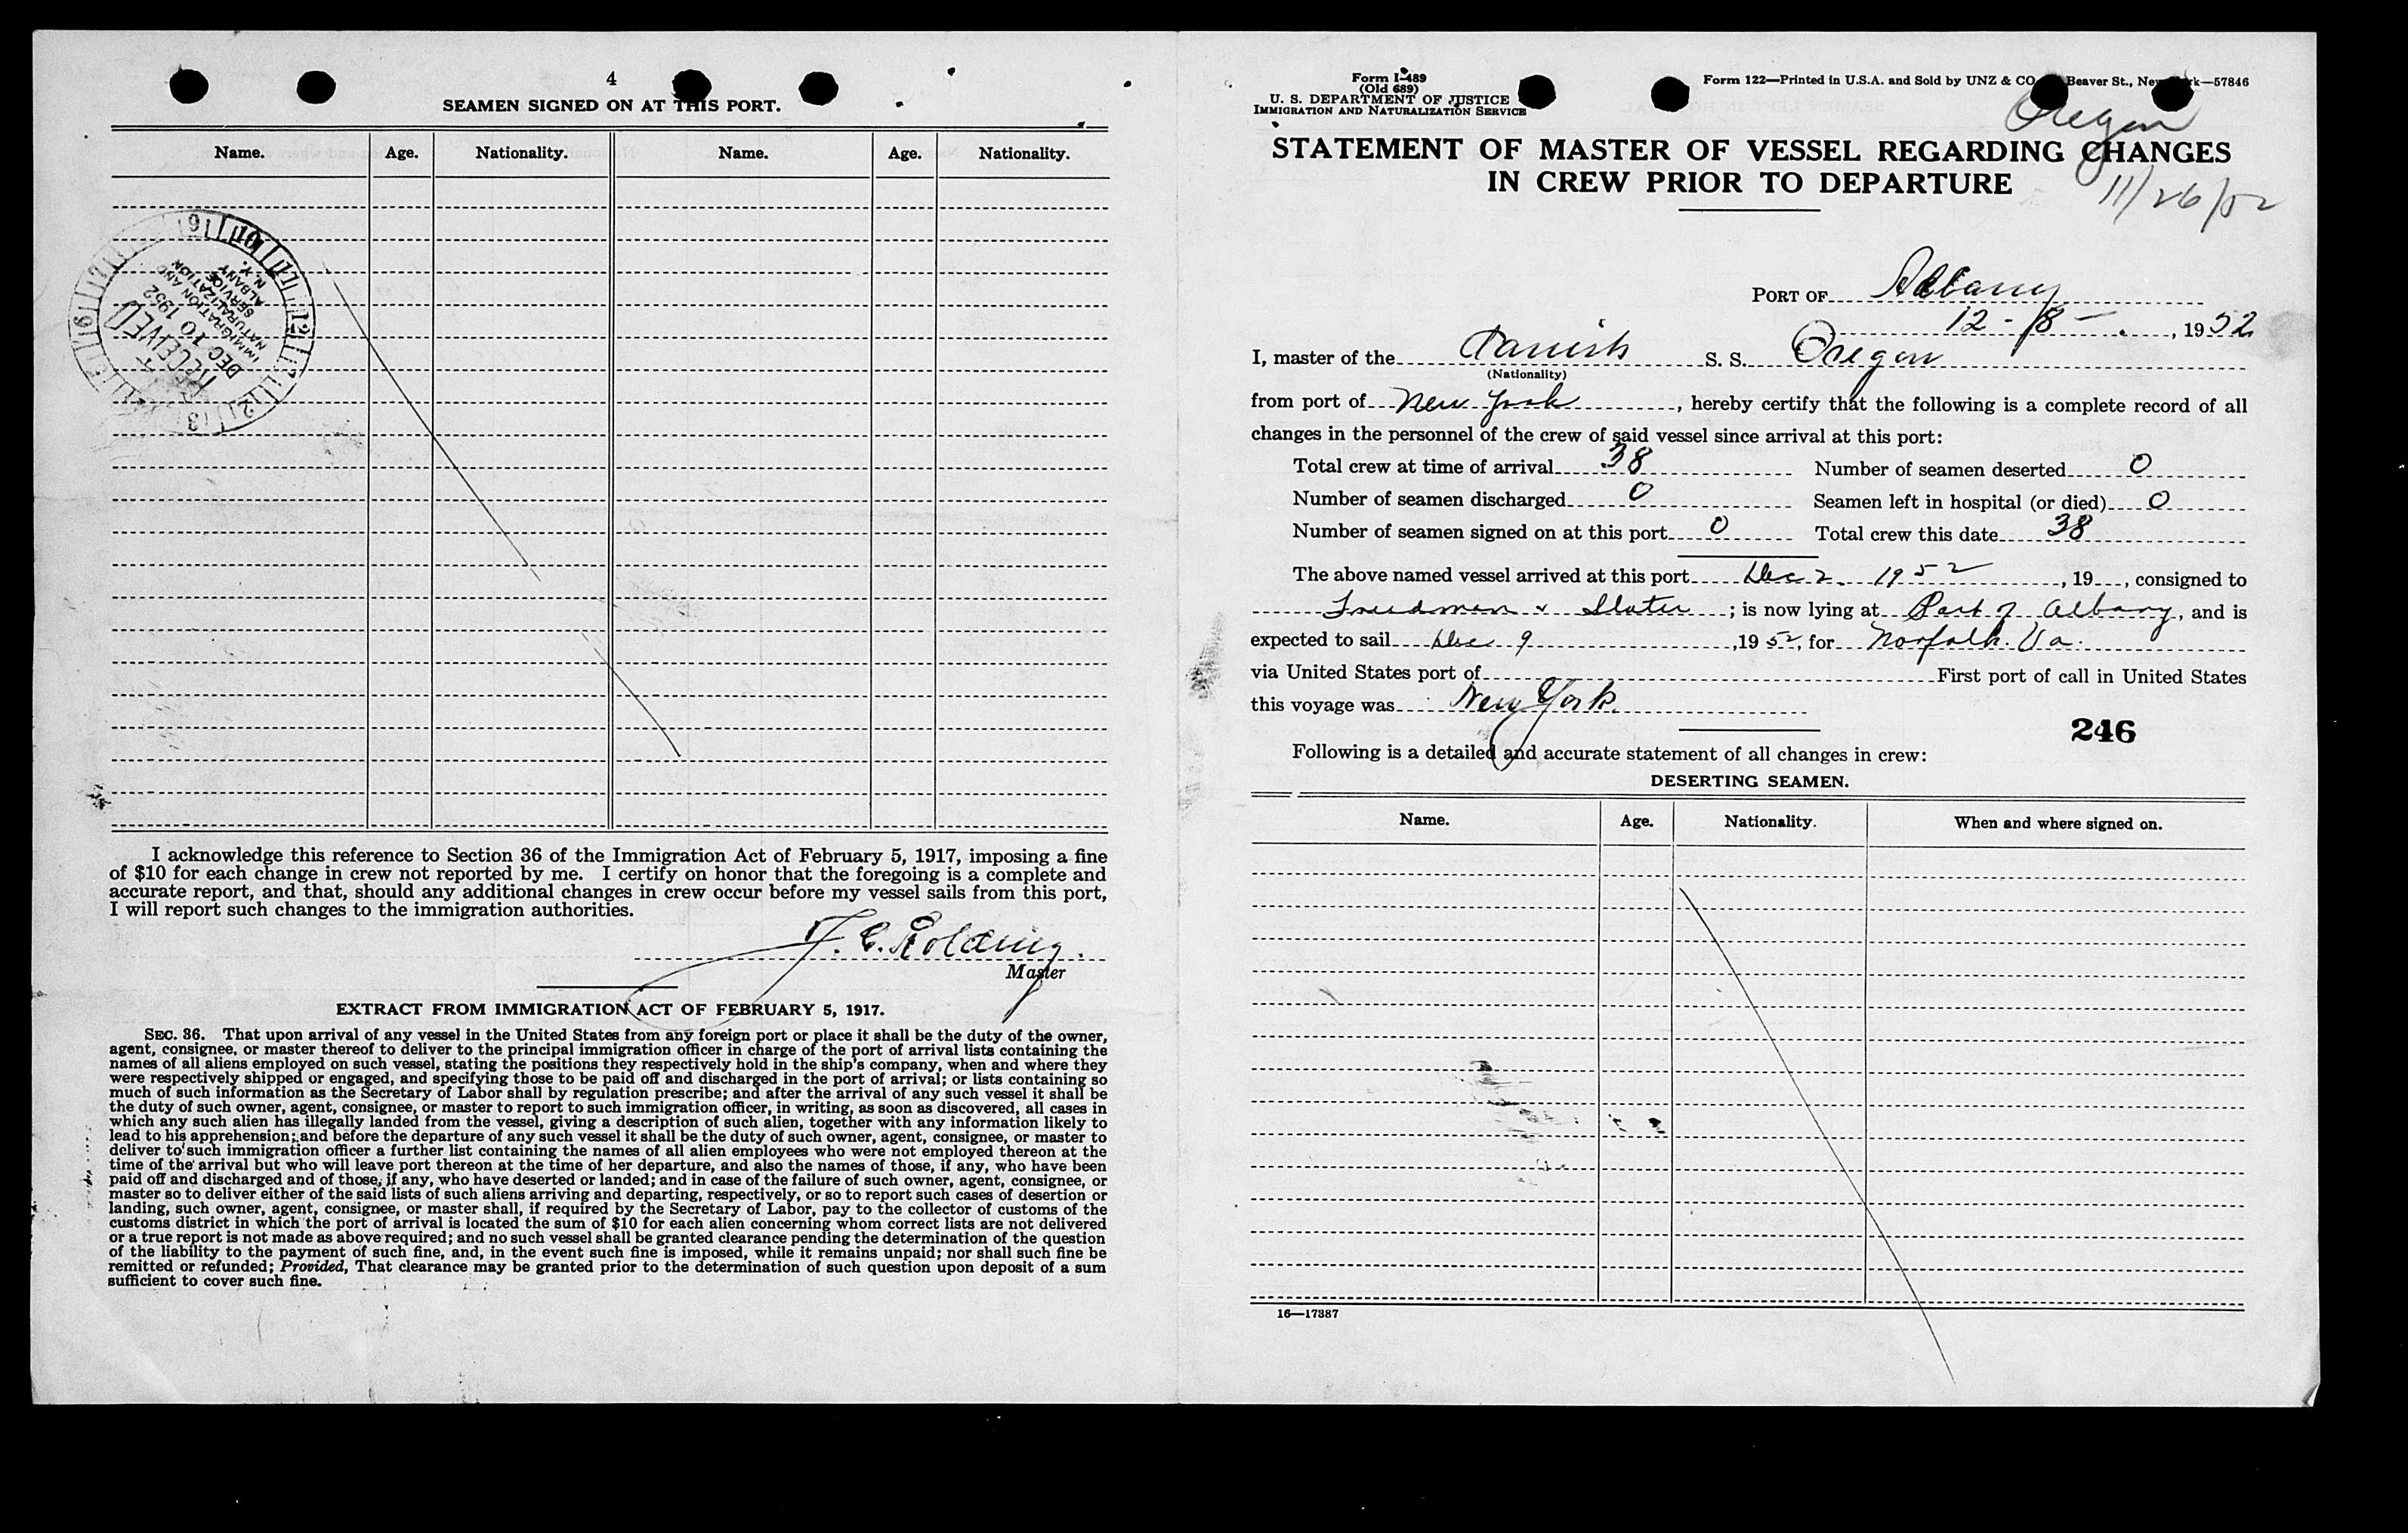 4
SEAMEN SIGNED ON AT THIS PORT.
Name. Age. Nationality. Name. Age. Nationality.
RECEIVED
DEC 10 1952
IMMIGRATION AND
NATURALIZATION
SERVICE
ALBANY
N.Y.
I acknowledge this reference to Section 36 of the Immigration Act of February 5, 1917, imposing a fine
of $10 for each change in crew not reported by me. I certify on honor that the foregoing is a complete and
accurate report, and that, should any additional changes in crew occur before my vessel sails from this port,
I will report such changes to the immigration authorities.
Master
EXTRACT FROM IMMIGRATION ACT OF FEBRUARY 5, 1917.
SEC. 36. That upon arrival of any vessel in the United States from any foreign port or place it shall be the duty of the owner,
agent, consignee, or master thereof to deliver to the principal immigration officer in charge of the port of arrival lists containing the
names of all aliens employed on such vessel, stating the positions they respectively hold in the ship's company, when and where they
were respectively shipped or engaged, and specifying those to be paid off and discharged in the port of arrival; or lists containing so
much of such information as the Secretary of Labor shall by regulation prescribe; and after the arrival of any such vessel it shall be
the duty of such owner, agent, consignee, or master to report to such immigration officer, in writing, as soon as discovered, all cases in
which any such alien has illegally landed from the vessel, giving a description of such alien, together with any information likely to
lead to his apprehension; and before the departure of any such vessel it shall be the duty of such owner, agent, consignee, or master to
deliver to such immigration officer a further list containing the names of all alien employees who were not employed thereon at the
time of the arrival but who will leave port thereon at the time of her departure, and also the names of those, if any, who have been
paid off and discharged and of those, if any, who have deserted or landed; and in case of the failure of such owner, agent, consignee, or
master so to deliver either of the said lists of such aliens arriving and departing, respectively, or so to report such cases of desertion or
landing, such owner, agent, consignee, or master shall, if required by the Secretary of Labor, pay to the collector of customs of the
customs district in which the port of arrival is located the sum of $10 for each alien concerning whom correct lists are not delivered
or a true report is not made as above required; and no such vessel shall be granted clearance pending the determination of the question
of the liability to the payment of such fine, and, in the event such fine is imposed, while it remains unpaid; nor shall such fine be
remitted or refunded; Provided, That clearance may be granted prior to the determination of such question upon deposit of a sum
sufficient to cover such fine.
Form I-489
(Old 689)
U. S. DEPARTMENT OF JUSTICE
IMMIGRATION AND NATURALIZATION SERVICE
Form 122—Printed in U.S.A. and Sold by UNZ & CO. Beaver St., New York—57846
Oregon
STATEMENT OF MASTER OF VESSEL REGARDING CHANGES
IN CREW PRIOR TO DEPARTURE
11/26/52
PORT OF Albany
12-8-, 1952
I, master of the Danish S. S. Oregon
(Nationality)
from port of New York, hereby certify that the following is a complete record of all
changes in the personnel of the crew of said vessel since arrival at this port:
Total crew at time of arrival 38 Number of seamen deserted 0
Number of seamen discharged 0 Seamen left in hospital (or died) 0
Number of seamen signed on at this port 0 Total crew this date 38
The above named vessel arrived at this port Dec 2. 1952, 19, consigned to
Freedman & Slater; is now lying at Port of Albany, and is
expected to sail Dec 9, 1952, for Norfolk. Va.
via United States port of First port of call in United States
this voyage was New York.
246
Following is a detailed and accurate statement of all changes in crew:
DESERTING SEAMEN.
Name. Age. Nationality. When and where signed on.
16—17387